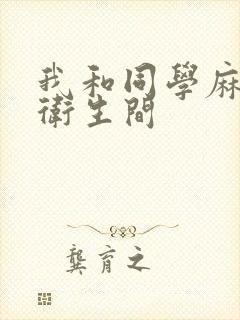 我和同學麻
衛生間
龔育之